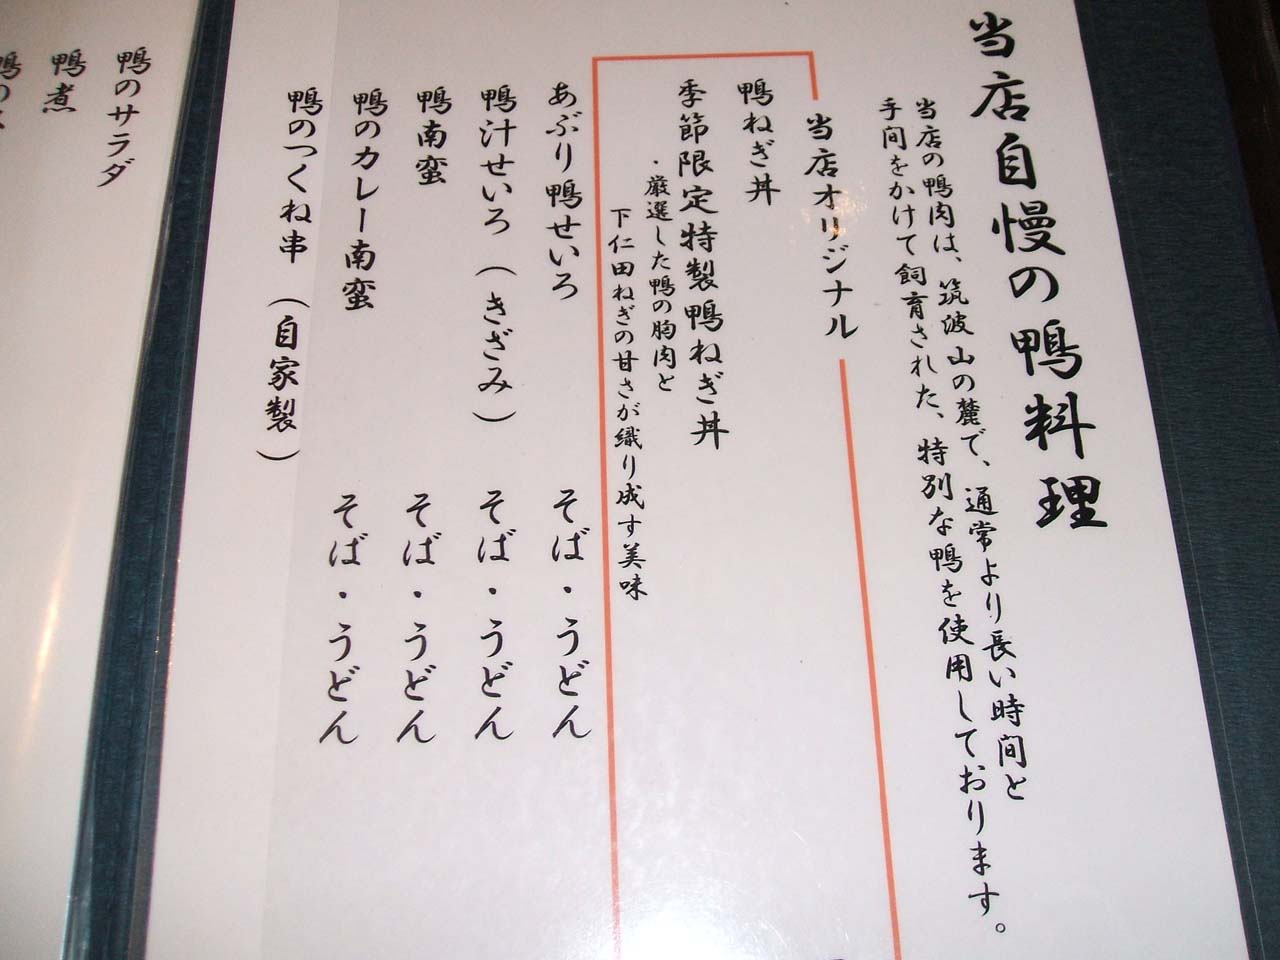 当店自慢の鴨料理
当店の鴨肉は、筑波山の麓で、通常より長い時間と
手間をかけて飼育された、特別な鴨を使用しております。
当店オリジナル
鴨ねぎ丼
季節限定特製鴨ねぎ丼
・厳選した鴨の胸肉と
下仁田ねぎの甘さが織り成す美味
あぶり鴨せいろ そば・うどん
鴨汁せいろ（きざみ） そば・うどん
鴨南蛮 そば・うどん
鴨のカレー南蛮 そば・うどん
鴨のつくね串（自家製）
鴨のサラダ
鴨煮